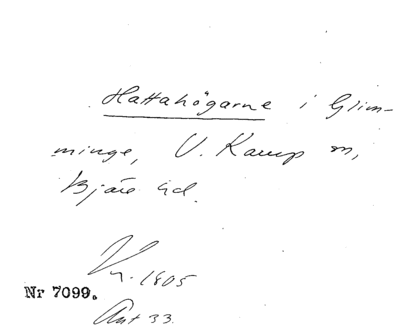 Hattahögarne i Glim-
minge, V. Karup sn,
Bjäre hd.
Kr. 1805
Nr 7099.
Ant 33.